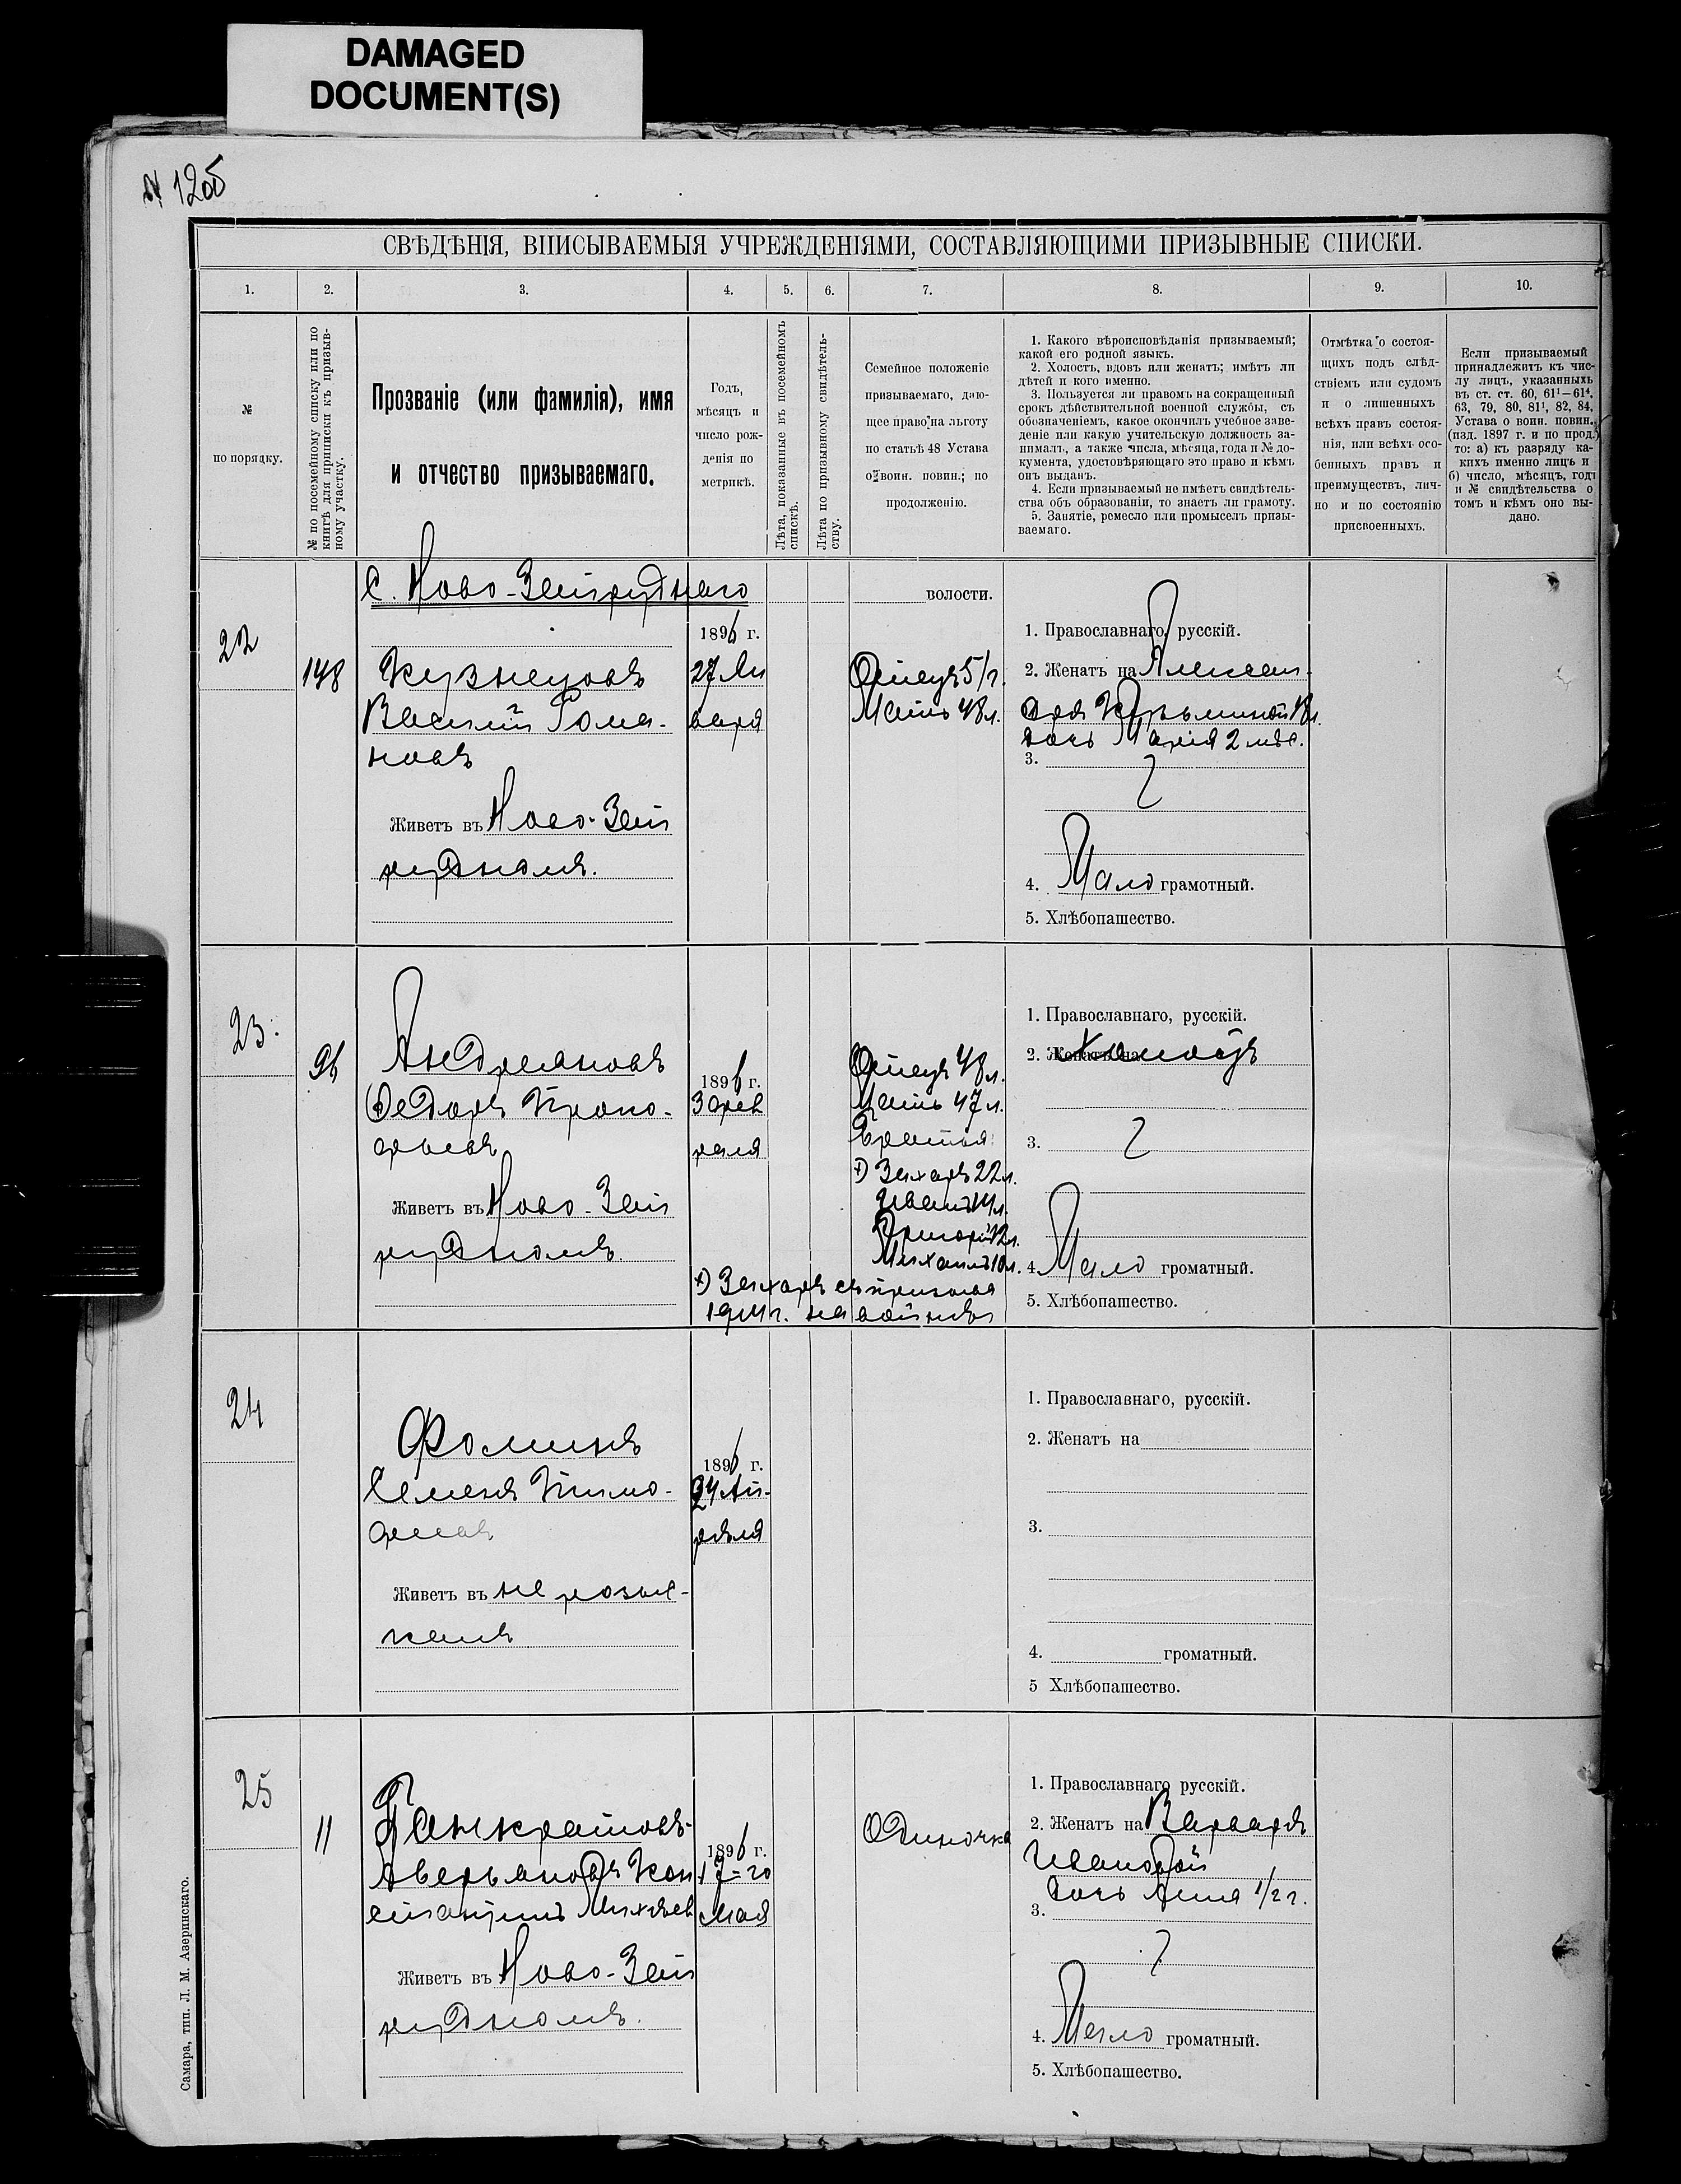 DAMAGED
DOCUMENT(S)
СВѢДѢНІЯ, ВПИСЫВАЕМЫЯ УЧРЕЖДЕНІЯМИ, СОСТАВЛЯЮЩИМИ ПРИЗЫВНЫЕ СПИСКИ.
1. 2. 3. 4. 5. 6. 7. 8. 9. 10.
№
по порядку.
№ по посемейному списку или по
книгѣ для приписки къ призыв-
ному участку.
Прозваніе (или фамилія), имя
и отчество призываемаго.
Годъ,
мѣсяцъ и
число рож-
денія по
метрикѣ.
Лѣта, показанные въ посемейномъ
спискѣ.
Лѣта по призывному свидѣтель-
ству.
Семейное положеніе
призываемаго, даю-
щее право на льготу
по статьѣ 48 Устава
о воин. повин.; по
продолженію.
1. Какого вѣроисповѣданія призываемый;
какой его родной языкъ.
2. Холостъ, вдовъ или женатъ; имѣтъ ли
дѣтей и кого именно.
3. Пользуется ли правомъ на сокращенный
срокъ дѣйствительной военной службы, съ
обозначеніемъ, какое окончилъ учебное заве-
деніе или какую учительскую должность за-
нималъ, а также числа, мѣсяца, года и № до-
кумента, удостовѣряющаго это право и кѣмъ
онъ выданъ.
4. Если призываемый не имѣетъ свидѣтель-
ства объ образованіи, то знаетъ ли грамоту.
5. Занятіе, ремесло или промыселъ призы-
ваемаго.
Отмѣтка о состоя-
щихъ подъ слѣд-
ствіемъ или судомъ
и о лишенныхъ
всѣхъ правъ состоя-
нія, или всѣхъ осо-
бенныхъ правъ и
преимуществъ, лич-
но и по состоянію
присвоенныхъ.
Если призываемый
принадлежитъ къ чис-
лу лицъ, указанныхъ
въ ст. ст. 60, 61¹—61⁴,
63, 79, 80, 81¹, 82, 84,
Устава о воин. повин.
(изд. 1897 г. и по прод.)
то: а) къ разряду ка-
кихъ именно лицъ и
б) число, мѣсяцъ, годъ
и № свидѣтельства о
томъ и кѣмъ оно вы-
дано.
волости.
22
148
Кузнецовъ
Василій Рома-
новъ
Живетъ въ Ново-Зап
руднομъ.
1896 г.
27 Ян
варя
Отецъ 51 г.
Мать 48 л.
1. Православнаго, русскій.
2. Женатъ на Алексан-
дочь Марія 2 мѣс.
3.
4. Мало грамотный.
5. Хлѣбопашество.
23.
96
Андреяновъ
Федоръ Проко-
фьевъ
Живетъ въ Ново-Зап
рудномъ.
1896 г.
3 Фев
раля
Отецъ 48 л.
Мать 47 л.
Братья:
х) Захаръ 22 л.
Иванъ 14 л.
Григорій 12 л.
Михаилъ 10 л.
х) Захаръ съ призыва
1914 г. на войнѣ
1. Православнаго, русскій.
2. Женатъ на Холостъ
3.
4. Мало громатный.
5. Хлѣбопашество.
24
Фоминъ
Семенъ Тимо-
феевъ
Живетъ въ не розыс-
канъ
1896 г.
24 Ап-
рѣля
1. Православнаго, русскій.
2. Женатъ на
3.
4. громатный.
5 Хлѣбопашество.
25
11
Панкратовъ-
Аверьяновъ Кон
стантинъ Михѣев
Живетъ въ Ново-Зап
рудномъ.
1896 г.
17=го
Мая
Одиночка
1. Православнаго русскій.
2. Женатъ на Варварѣ
Ивановой
дочь Анна 1/2 г.
3.
4. Мало громатный.
5. Хлѣбопашество.
Самара, тип. Л. М. Азеринскаго.